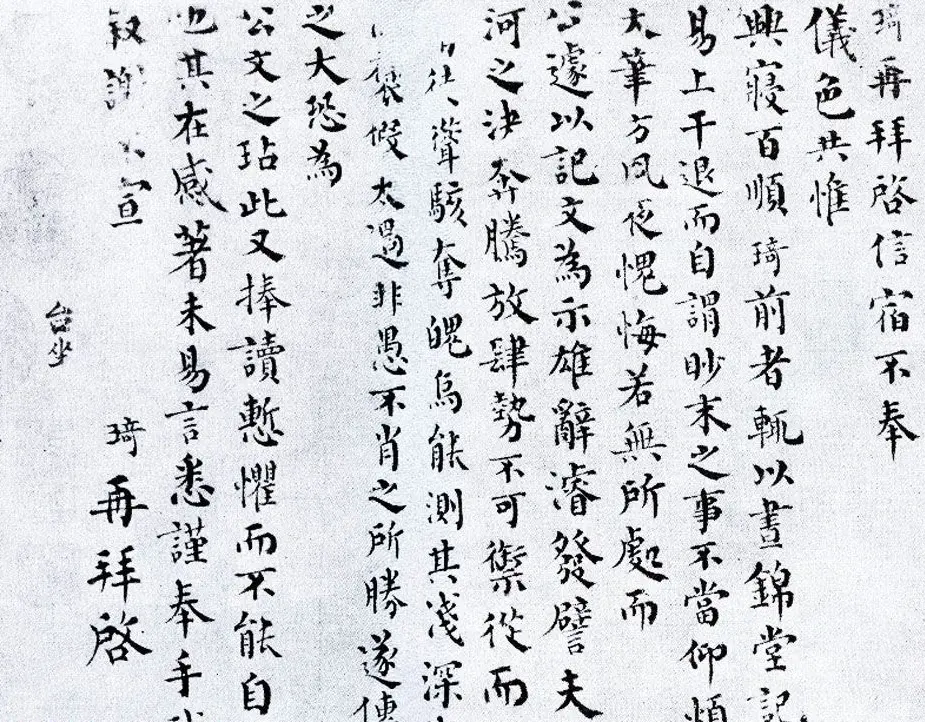 琦再拜啓信宿不奉
儀色共惟
興寢百順琦前者輒以晝錦堂記
易上干退而自謂眇末之事不當仰煩
大筆方夙夜愧悔若無所處而
公遽以記文為示雄辭濬發譬夫
河之決奔騰放肆勢不可禦從而
聳駭奪魄烏能測其淺深
褒假太過非愚不肖之所勝遂傳
之大恐為
公文之玷此又捧讀慙懼而不能自
也其在感著未易言悉謹奉手
叙謝宣
琦再拜啓
台坐